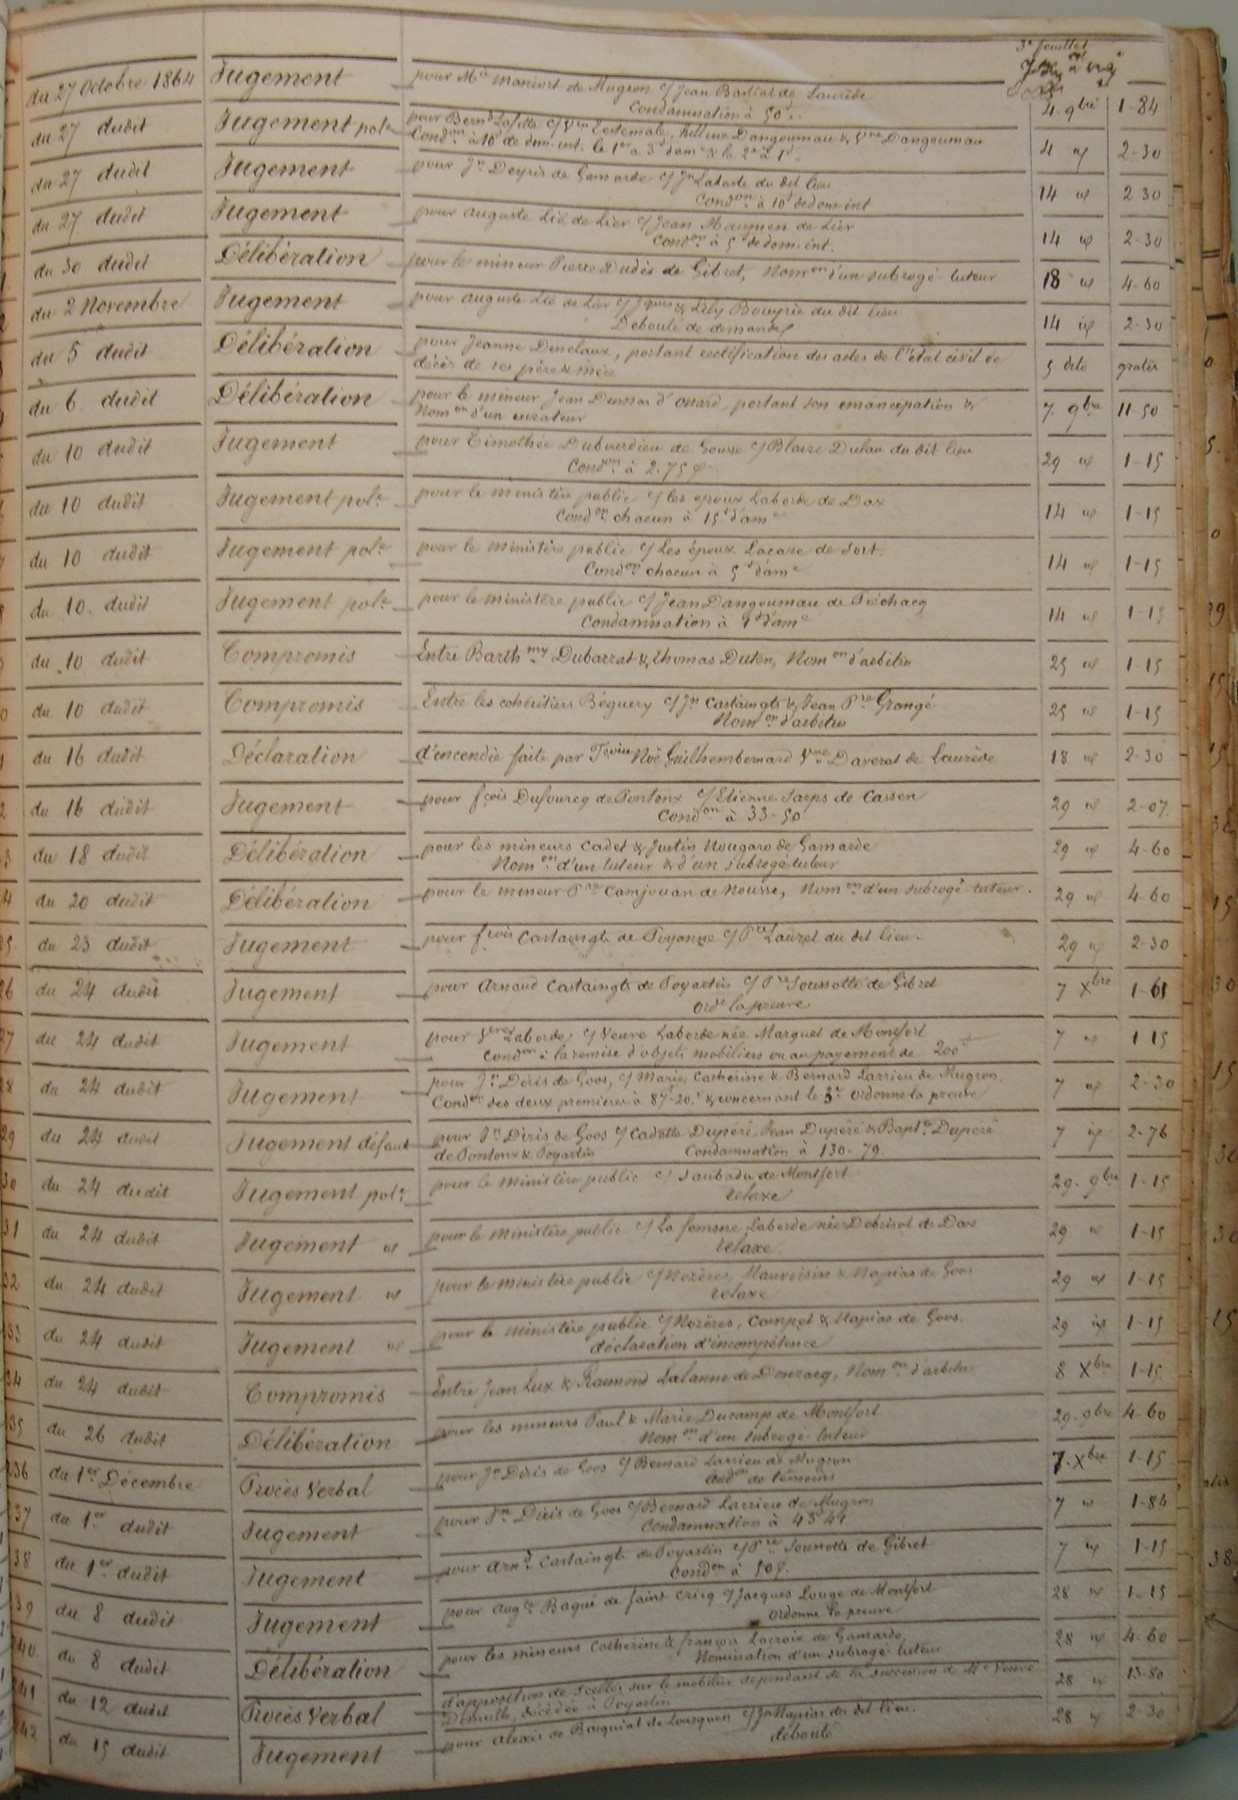 3e feuillet
du 27 Octobre 1864 Jugement pour Me Manfort de Mugron c/ Jean Bastiat de Laurède 4 9bre 1-84
Condamnation à 50f
du 27 dudit Jugement pole pour Bernd Lafitte c/ Dangoumau & Vve Dangoumau 4 id 2-30
Condon à 10f de dom. int. le 1er à 3f d'ame & la 2e à 1f
du 27 dudit Jugement pour Jn Deyris de Gamarde c/ Jn Lataste du dit lieu 14 id 2 30
Condon à 10f de dom. int
du 27 dudit Jugement pour Auguste Lié de Lier c/ Jean Maumen de Lier 14 id 2-30
Condon à 5f de dom. int.
du 30 dudit Délibération pour le mineur Pierre Dudès de Gibret, Nomon d'un subrogé tuteur 18 id 4-60
du 2 Novembre Jugement pour Auguste Lié de Lier c/ Bouyrie du dit lieu 14 id 2-30
Débouté de demandes
du 5 dudit Délibération pour Jeanne Dinclaux, portant rectification des actes de l'état civil de 5 dito gratis
décès de ses père & mère
du 6 dudit Délibération pour le mineur Jean Dumas d'Onard, portant son émancipation & 7. 9bre 11-50
Nomon d'un curateur
du 10 dudit Jugement pour Timothée Dubourdieu de Gousse c/ Blaize Dulau du dit lieu 29 id 1-15
Condon à 2.75
du 10 dudit Jugement pole pour le ministère public c/ les époux Laborde de Dax 14 id 1-15
Condon chacun à 15f d'ame
du 10 dudit Jugement pole pour le ministère public c/ Les époux Lacaze de Sort. 14 id 1-15
Condon chacun à 5f d'ame
du 10. dudit Jugement pole pour le ministère public c/ Jean Dangoumau de Préchacq 14 id 1-15
Condamnation à 1f d'ame
du 10 dudit Compromis Entre Barthmy Dubarrat & Thomas Duten, Nomon d'arbitre 25 id 1-15
du 10 dudit Compromis Entre les cohéritiers Béguery c/ Jn Castaingts & Jean Pre Grangé 25 id 1-15
Nomon d'arbitre
du 16 dudit Déclaration d'incendie faite par Noë Guilhembernard Vve Daverat de Laurède 18 id 2-30
du 16 dudit Jugement pour fçois Dufourcq de Pontonx c/ Etienne Sarps de Cassen 29 id 2-07
Condon à 33-50
du 18 dudit Délibération pour les mineurs Cadet & Justin Nougaro de Gamarde 29 id 4-60
Nomon d'un tuteur & d'un subrogé tuteur
du 20 dudit Délibération pour le mineur Pre Camjouan de Nousse, Nomon d'un subrogé-tuteur. 29 id 4-60
du 23 dudit Jugement pour fçois Castaingts de Poyanne c/ Pre Lauzet du dit lieu 29 id 2-30
26 du 24 dudit Jugement pour Arnaud Castaingts de Poyartin c/ Pre Soussotte de Gibret 7 Xbre 1-61
Orde la preuve
27 du 24 dudit Jugement pour Laborde c/ Veuve Laborde née Marquet de Montfort 7 id 1 15
Condon à la remise d'objets mobiliers ou au payement de 200f
28 du 24 dudit Jugement pour Jn Diris de Goos, c/ Marie, Catherine & Bernard Larrieu de Mugron. 7 id 2-30
Condon des deux premières à 87-20f & concernant le 3e ordonne la preuve
29 du 24 dudit Jugement défaut pour Jn Diris de Goos c/ Cadette Dupéré, Jean Dupéré & Bapte Dupéré 7 id 2-76
de Pontonx & Poyartin Condamnation à 130-79
30 du 24 dudit Jugement pole pour le ministère public c/ Saubadu de Montfort 29. 9bre 1-15
relaxe
31 du 24 dudit Jugement id pour le ministère public c/ La femme Laborde née Debrisat de Dax 29 id 1-15
relaxe.
32 du 24 dudit Jugement id pour le ministère public c/ Nozères, Mauvoisin & Napias de Goos 29 id 1-15
relaxe
33 du 24 dudit Jugement id pour le ministère public c/ Nozères, Compet & Napias de Goos. 29 id 1-15
déclaration d'incompétence
34 du 24 dudit Compromis Entre Jean Lux & Raimond Lalanne de Donzacq, Nomon d'arbitre 8 Xbre 1-15
35 du 26 dudit Délibération pour les mineurs Paul & Marie Ducamp de Montfort 29-9bre 4-60
Nomon d'un subrogé-tuteur
236 du 1er Décembre Procès Verbal pour Jn Diris de Goos c/ Bernard Larrieu de Mugron 7-Xbre 1-15
audon de témoins
37 du 1er dudit Jugement pour Jn Diris de Goos c/ Bernard Larrieu de Mugron 7 id 1-84
Condamnation à 43 44
38 du 1er dudit Jugement pour Arnd Castaingts de Poyartin c/ Pre Soussotte de Gibret 7 id 1-15
Condon à 50f.
39 du 8 dudit Jugement pour Augte Baqué de Saint Cricq c/ Jacques Louge de Montfort 28 id 1-15
Ordonne la preuve
240 du 8 dudit Délibération pour les mineurs Catherine & françois Lacroix de Gamarde 28 id 4-60
Nomination d'un subrogé tuteur
241 du 12 dudit Procès Verbal d'apposition de scellés sur le mobilier dépendant de la succession de Me Veuve 28 id 13-80
décédée à Poyartin
242 du 15 dudit Jugement pour Alexis de Basquiat de Lourquen c/ Jn Napias du dit lieu. 28 id 2-30
débouté